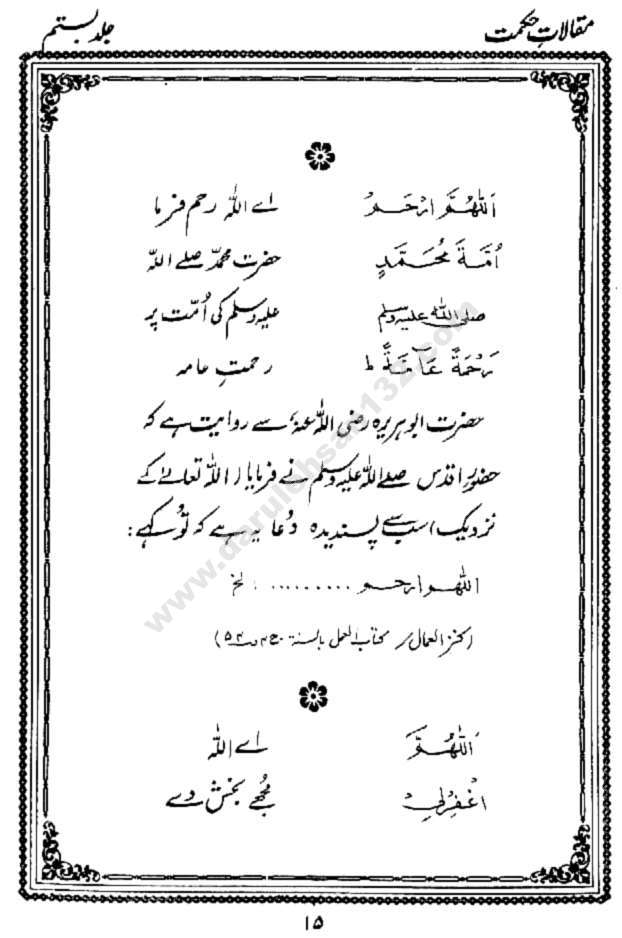 مقالاتِ حکمت جلد بستم
اَللّٰهُمَّ ارْحَمْ اے اللہ رحم فرما
اُمَّةَ مُحَمَّدٍ حضرت محمدؐ صلے اللہ
صلی اللہ علیہ وسلم علیہ وسلم کی اُمّت پر
رَحْمَةً عَآمَّةً ط رحمتِ عامہ
حضرت ابوہریرہ رضی اللہ عنہٗ سے روایت ہے کہ
حضورِ اقدس صلے اللہ علیہ وسلم نے فرمایا (اللہ تعالےٰ کے
نزدیک) سب سے پسندیدہ دُعا یہ ہے کہ تُو کہے:
اللھم ارحم ......... الخ
(کنز العمال / کتاب العمل بالسنۃ
اَللّٰهُمَّ اے اللہ
اغْفِرْلِيْ مُجھے بخش دے
۱۵
www.darulehsan132.com